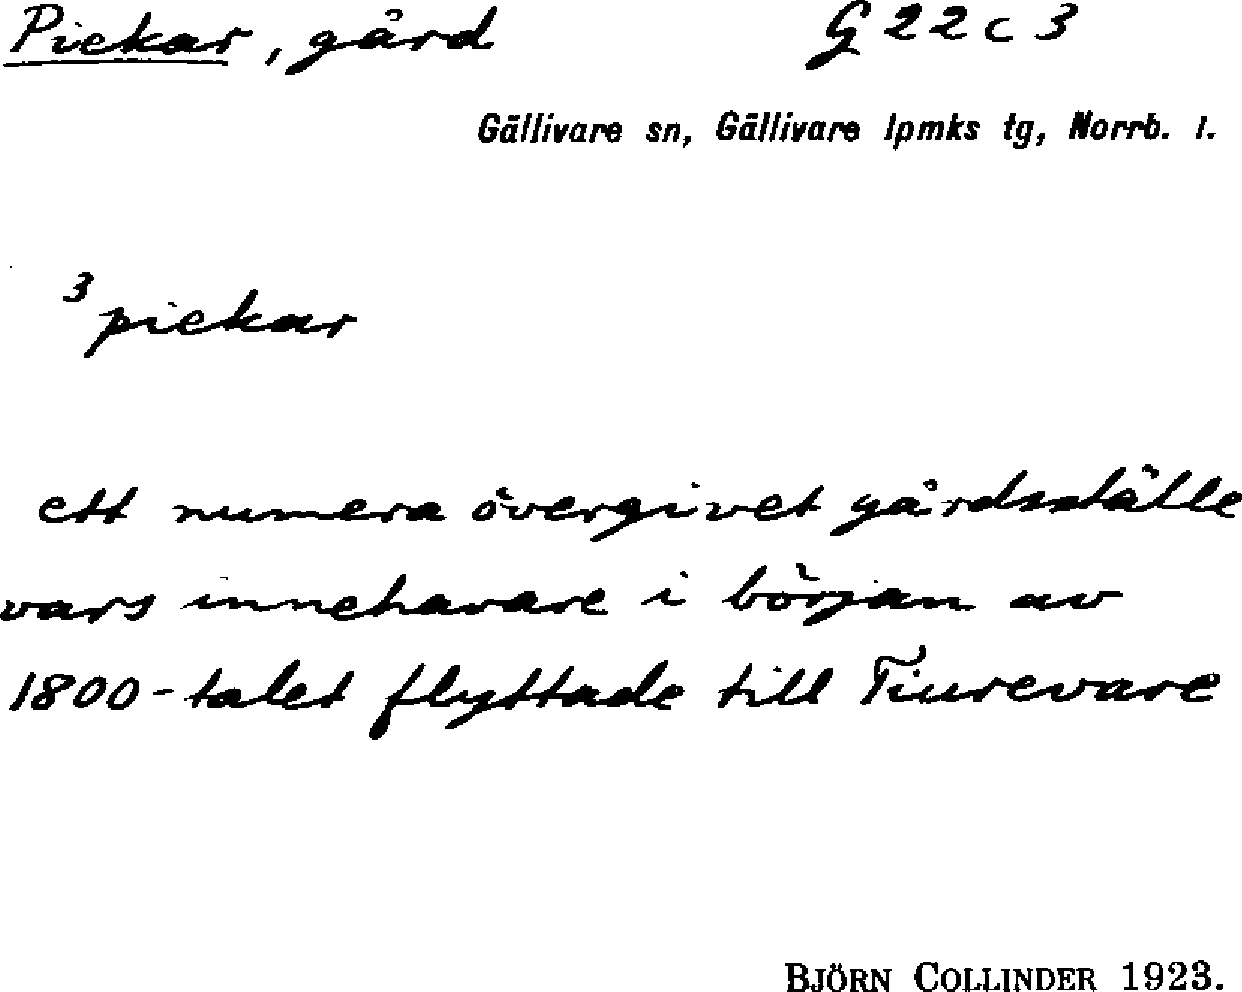 Piekar, gård G 22 c 3
Gällivare sn, Gällivare lpmks tg, Norrb. l.
³piekar
ett numera övergivet gårdsställe
vars innehavare i början av
1800-talet flyttade till Tiurevare
BJÖRN COLLINDER 1923.